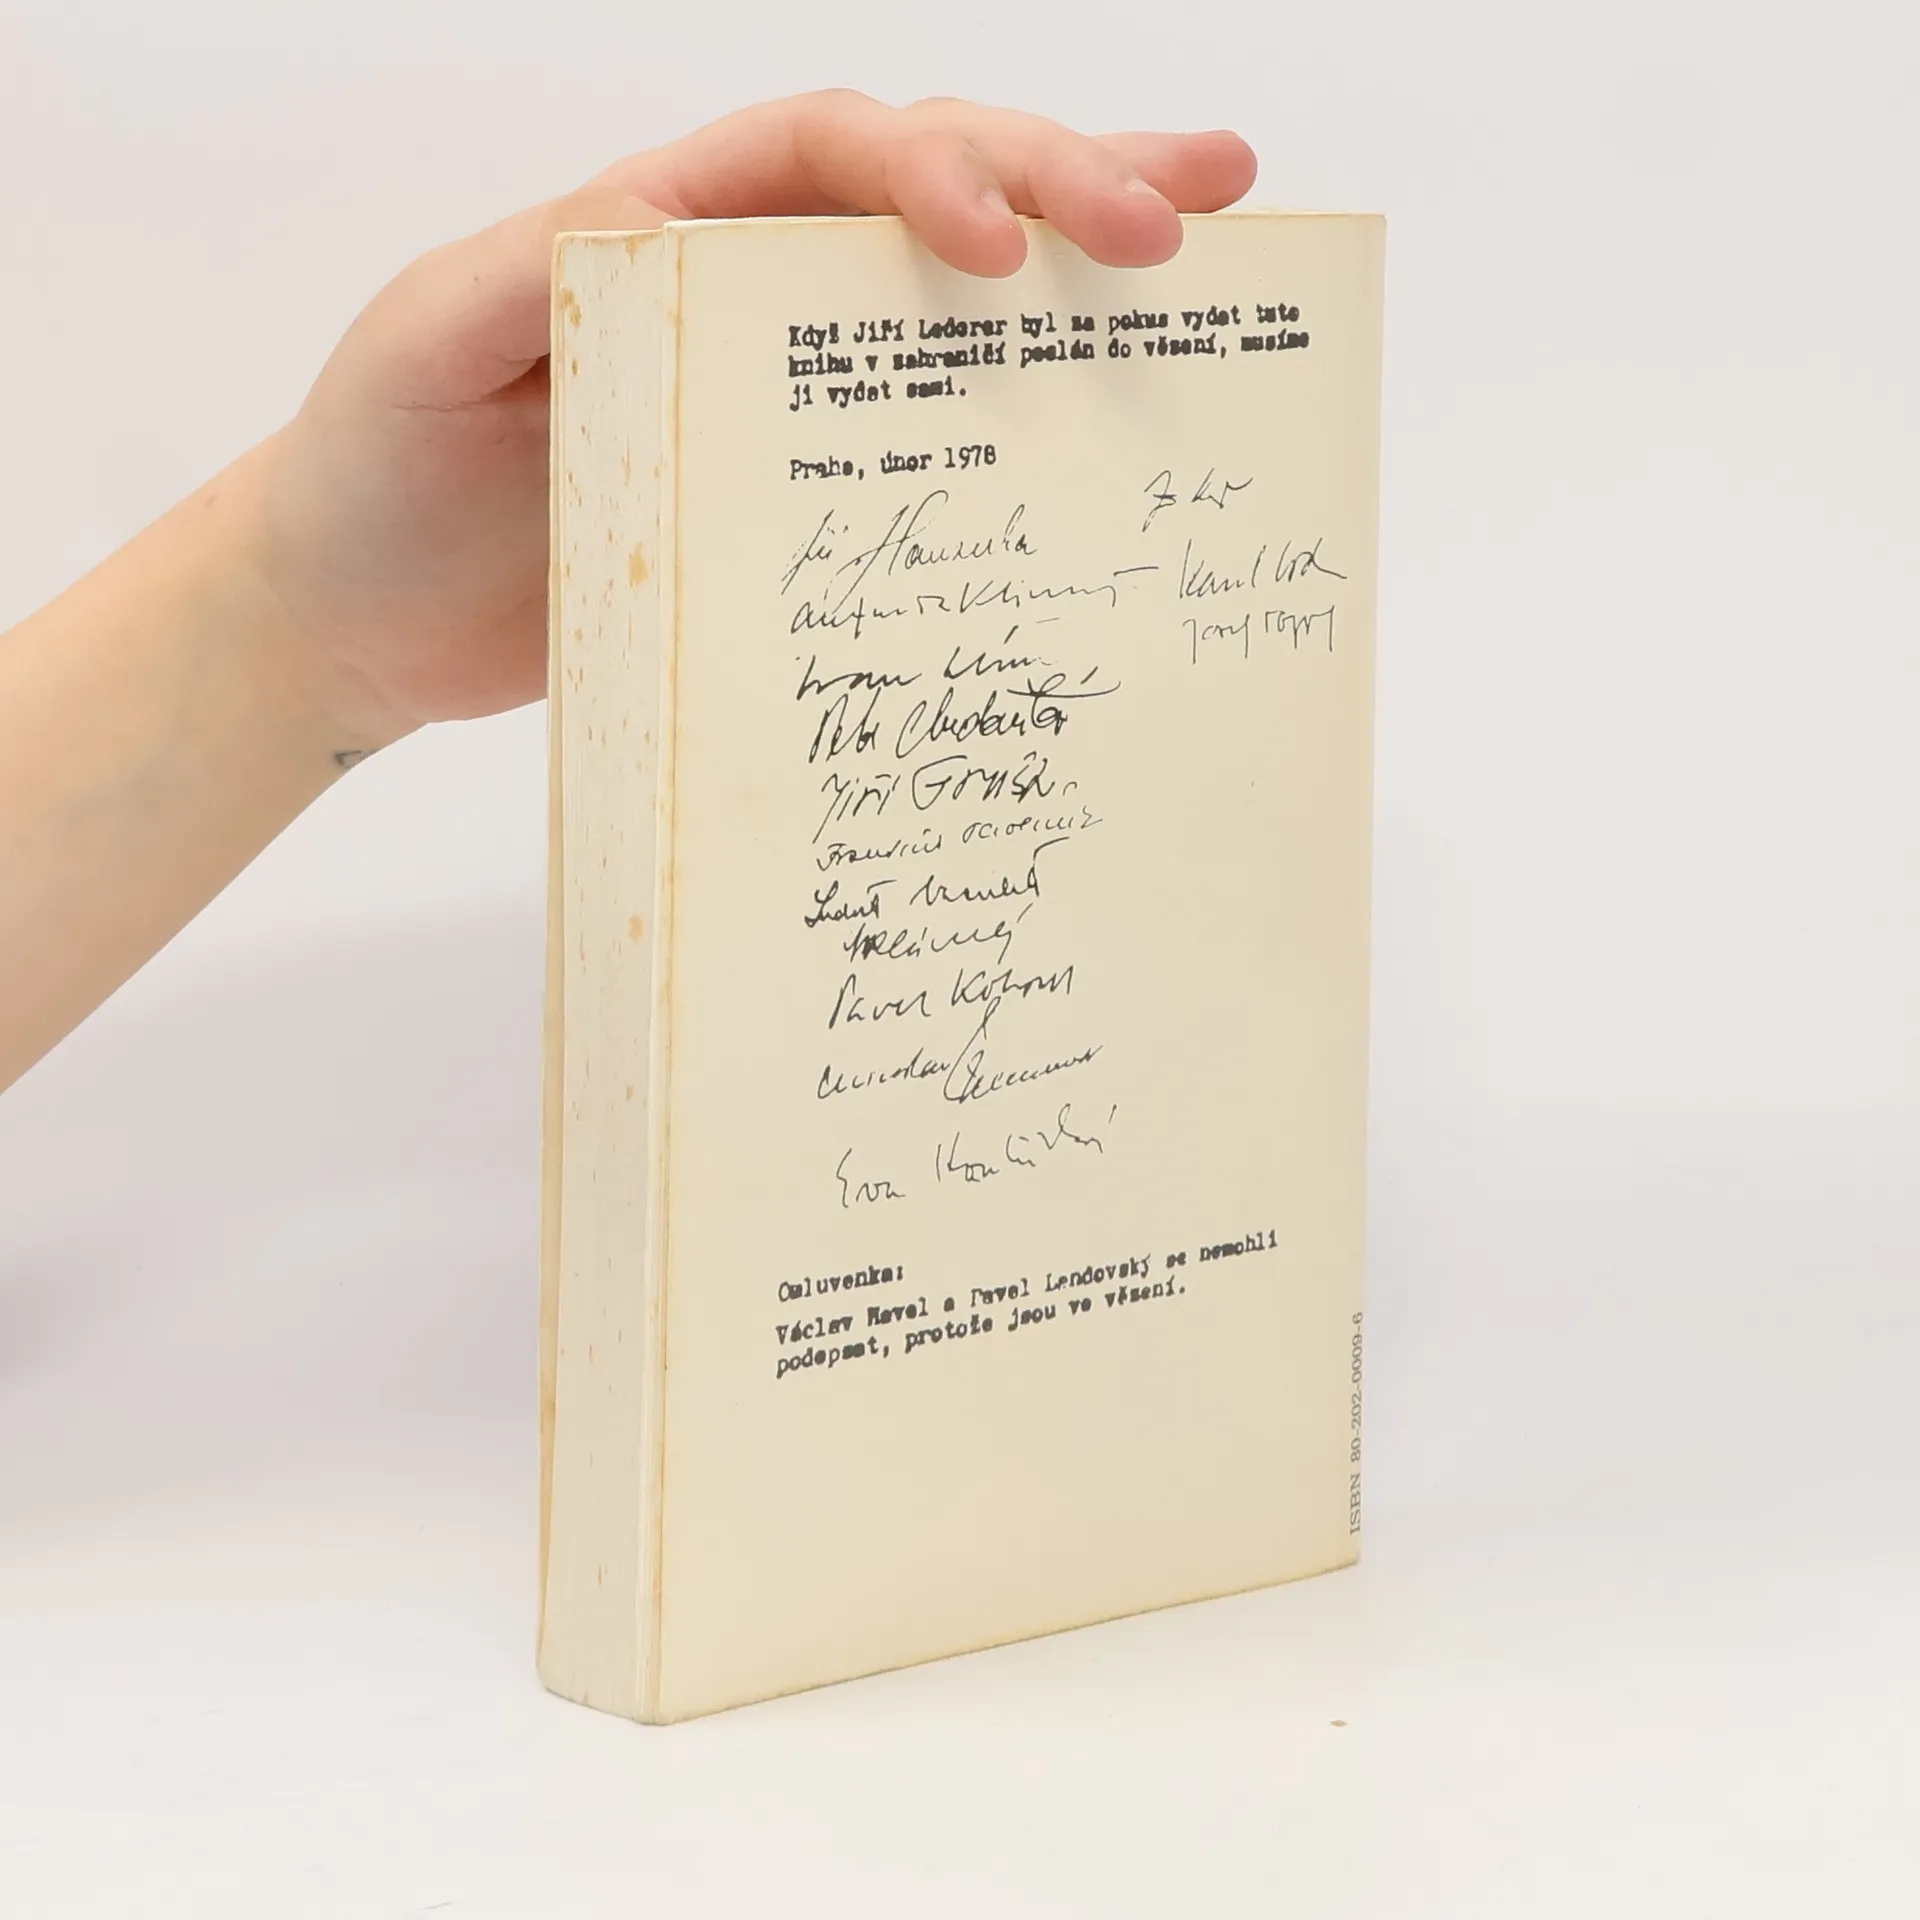 Když Jiří Lederer byl za pokus vydat tuto
knihu v zahraničí poslán do vězení, musíme
ji vydat sami.
Praha, únor 1978
Jiří Hanzelka
Ivan Klíma
Petr Chudožilov
Jiří Gruša
František Pavlíček
Ludvík Vaculík
Pavel Kohout
Eva Kantůrková
Karol Sidon
Omluvenka:
Václav Havel a Pavel Landovský se nemohli
podepsat, protože jsou ve vězení.
ISBN 80-202-0009-6